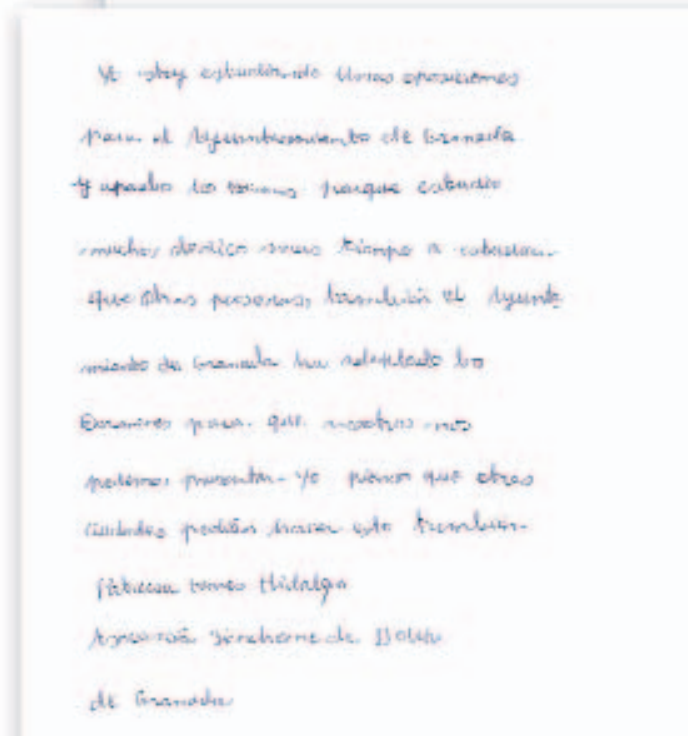 Yo estoy estudiando Unas oposiciones
para el Ayuntamiento de Granada
y apruebo los temas porque estudio
mucho, dedico mas tiempo a estudiar
que Otras personas, también el Ayunta
miento de Granada ha adaptado los
Examenes para que nosotros nos
podamos presentar. Yo pienso que otras
Ciudades podrían hacer esto también.
Hidalgo
Asociación Síndrome de Down
de Granada